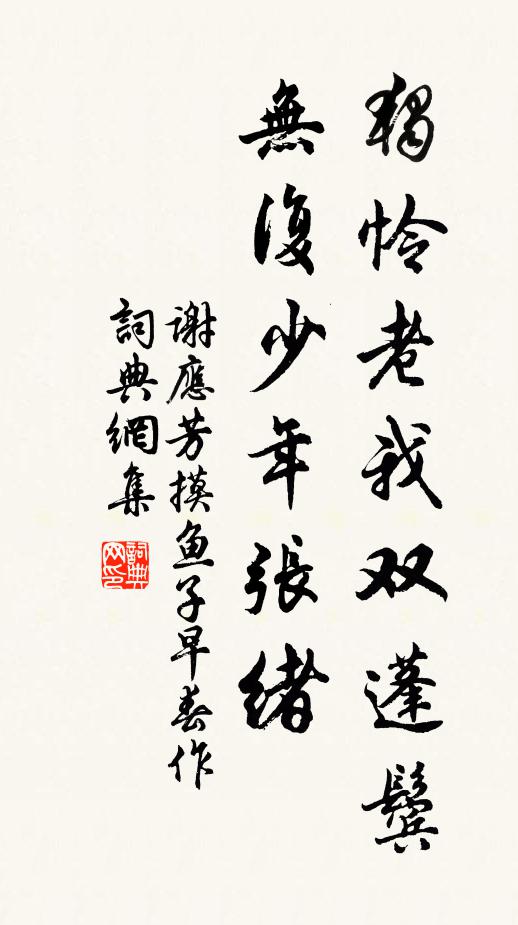 獨怜老我双蓬鬢
無復少年張緒
謝應芳摸鱼子早春作
詞典網集
詞典网印